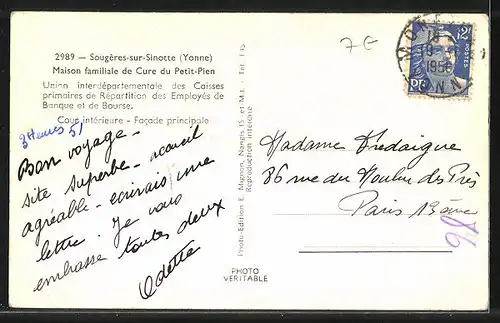 2989 — Sougères-sur-Sinotte (Yonne)
Maison familiale de Cure du Petit-Pien
Union interdépartementale des Caisses
primaires de Répartition des Employés de
Banque et de Bourse.
Cour intérieure - Façade principale
Bon voyage -
site superbe - accueil
agréable - écrirais une
lettre. Je vous
embrasse toutes deux
Odette
Photo-Edition E. Mignon, Nangis (S.-et-M.) - Tél. 115
Reproduction interdite
PHOTO
VÉRITABLE
7€
12F
POSTES
1956
Madame Fredaigue
86 rue du Moulin des Prés
Paris 13ème